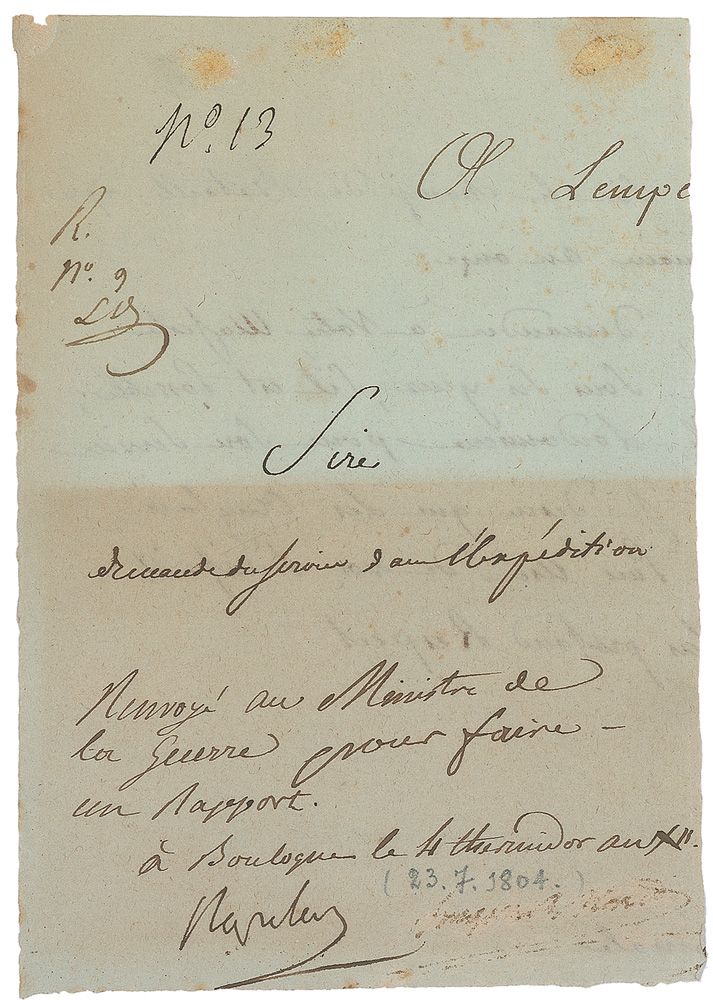 No. 13
A Lempe
R.
No. 9
Sire
demande du service dans l'Expédition
Renvoyé au Ministre de
la Guerre pour faire –
un Rapport.
à Boulogne le 4 thermidor an XII.
(23.7.1804.)
Napoleon